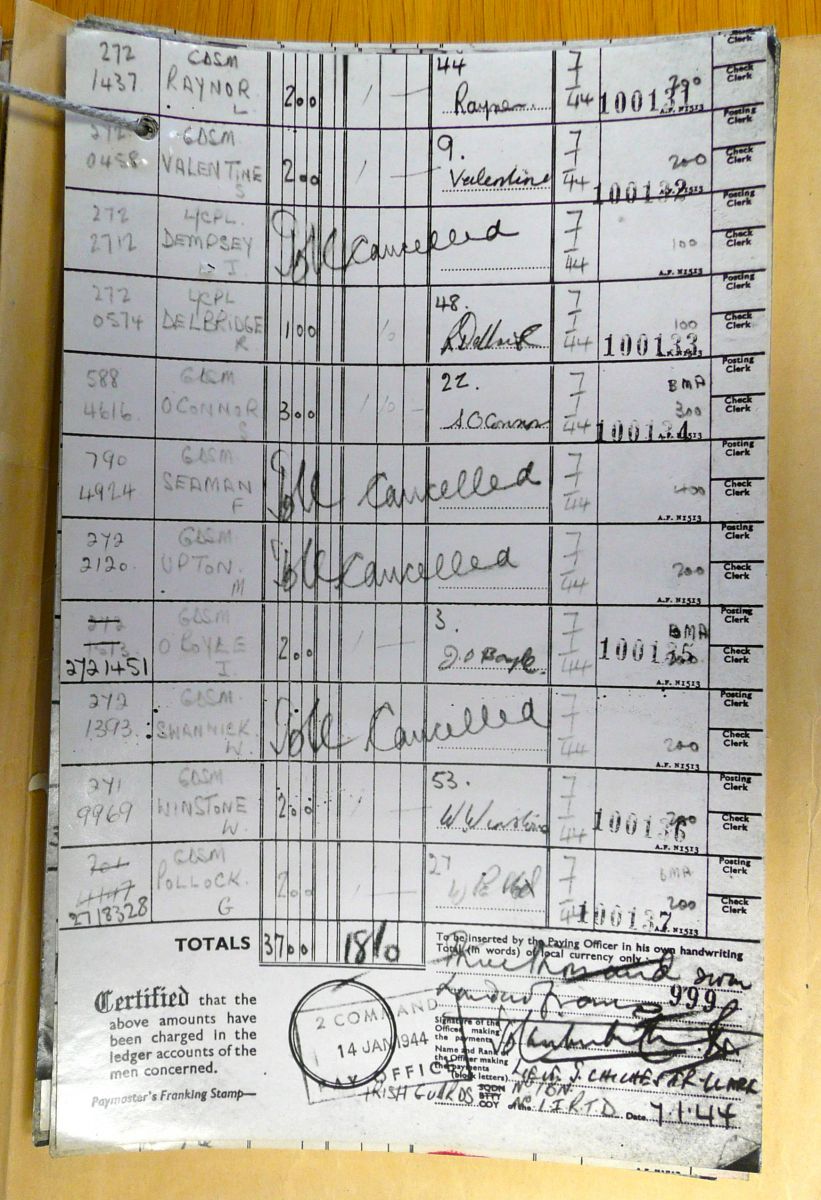 272 GDSM 44 7 Check Clerk
1437 RAYNOR 200 1 — Rayner 1 200
L 44 100131 A.F. N1513 Posting Clerk
272 GDSM 9. 7
0458 VALENTINE 200 1 — Valentine 1 200 Check Clerk
S 44 100132 A.F. N1513 Posting Clerk
272 L/CPL. 7
2712 DEMPSEY Cancelled 1 100 Check Clerk
I 44 A.F. N1513 Posting Clerk
272 L/CPL 48. 7
0574 DELBRIDGE 100 10 1 100 Check Clerk
R 44 100133 A.F. N1513 Posting Clerk
588 GDSM 22. 7 BMA
4616. O'CONNOR 300 1 10 — S O'Connor 1 300 Check Clerk
S 44 100134 A.F. N1513 Posting Clerk
790 GDSM 7
4924 SEAMAN Cancelled 1 400 Check Clerk
F 44 A.F. N1513 Posting Clerk
272 GDSM 7
2120. UPTON. Cancelled 1 200 Check Clerk
M 44 A.F. N1513 Posting Clerk
272 GDSM 3. 7 BMA
O BOYLE 200 1 — J O Boyle. 1 100135 Check Clerk
2721451 I. 44 A.F. N1513 Posting Clerk
272 GDSM 7
1393. SWANNICK Cancelled 1 200 Check Clerk
W. 44 A.F. N1513 Posting Clerk
271 GDSM 53. 7
9969 WINSTONE 200 1 — W Winstone 1 200 Check Clerk
W. 44 100136 A.F. N1513 Posting Clerk
GDSM 27 7 BMA
POLLOCK. 200 1 — 1 200 Check Clerk
2718328 G 44 100137
TOTALS 3700 18/0
To be inserted by the Paying Officer in his own handwriting
Total (in words) of local currency only
Three thousand seven
hundred francs 999
Certified that the
above amounts have
been charged in the
ledger accounts of the
men concerned.
Paymaster's Franking Stamp—
2 COMMAND
14 JAN 1944
PAY OFFICE
Signature of the
Officer making
the payments
Name and Rank of
the Officer making
the payments
(block letters)
LIEUT J. CHICHESTER CLARK
IRISH GUARDS SQDN BTTY COY
of No. 1 I.R.T.D. Date 7.1.44